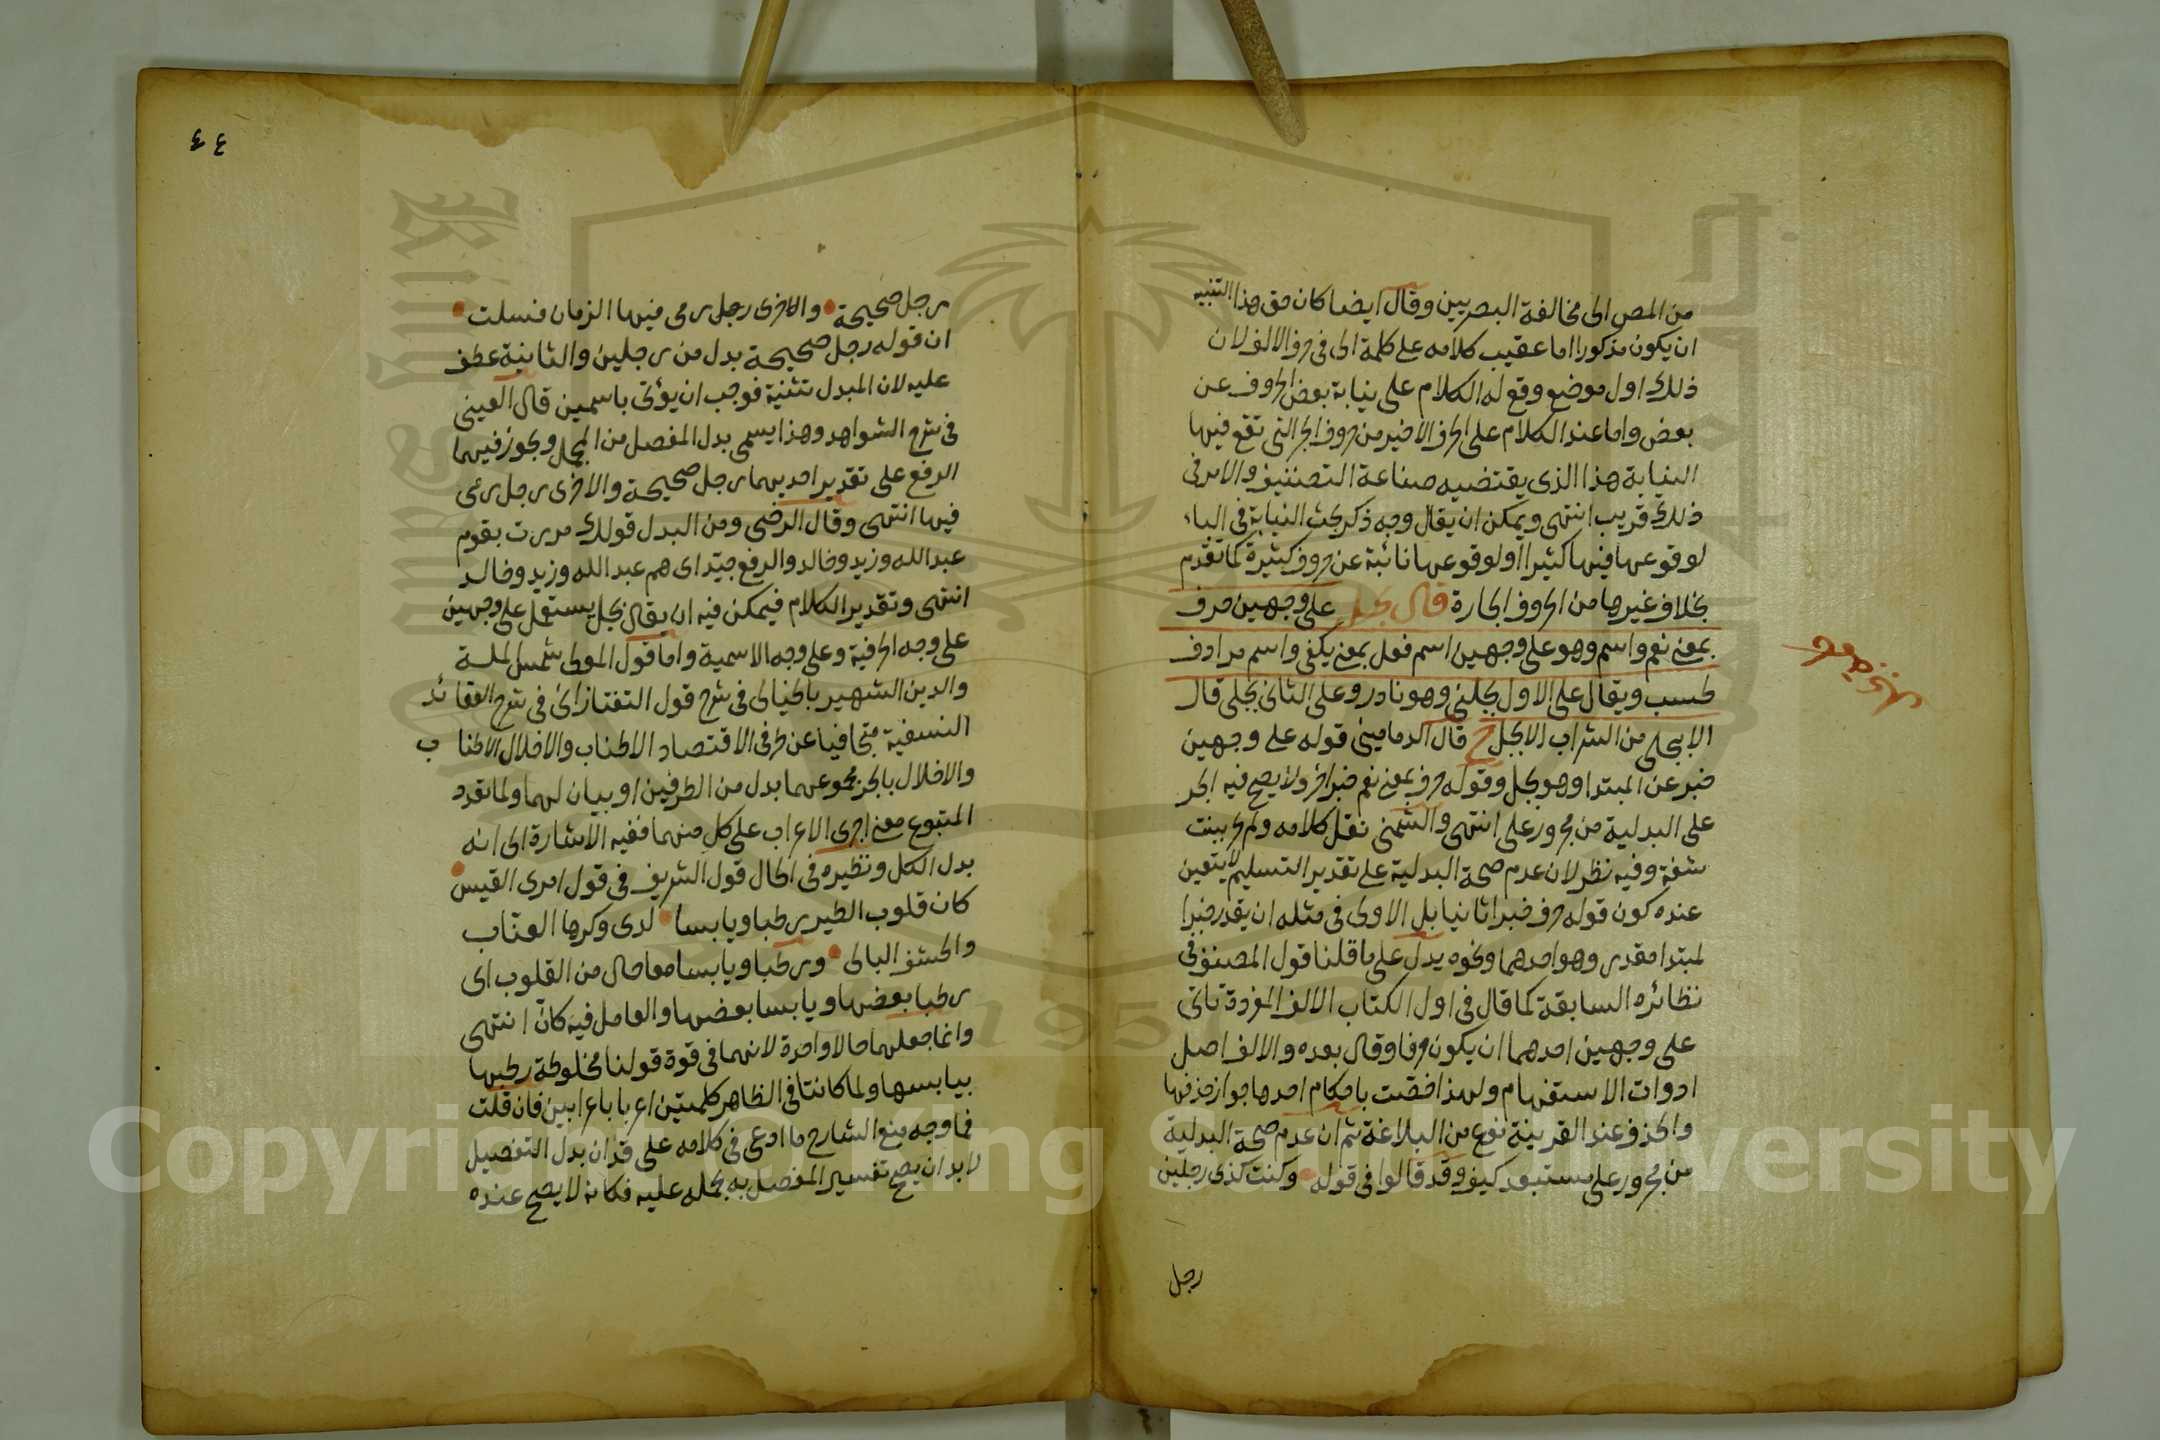 من المص الى مخالفة البصريين وقال ايضا كان حق هذا التنبيه
ان يكون مذكورا اما عقيب كلامه على كلمة الى فى حرف الالف لان
ذلك اول موضع وقع له الكلام على نيابة بعض الحروف عن
بعض واما عند الكلام على الحرف الاخير من حروف الجر التى تقع فيها
النيابة هذا الذى يقتضيه صناعة التصنيف والامر فى
ذلك قريب انتهى ويمكن ان يقال وجه ذكر بحث النيابة فى الباء
لوقوعها فيها كثيرا او لوقوعها نائبة عن حروف كثيرة كما تقدم
بخلاف غيرها من الحروف الجارة قال بجل على وجهين حرف
بمعنى نعم واسم وهو على وجهين اسم فعل بمعنى يكفى واسم مرادف
لحسب ويقال على الاول بجلنى وهو نادر وعلى الثانى بجلى قال
الا بجلى من الشراب الا بجل ح قال الدمامينى قوله على وجهين
خبر عن المبتدا وهو بجل وقوله حرف بمعنى نعم خبر اخر ولا يصح فيه الجر
على البدلية من مجرور على انتهى والشمنى نقل كلامه ولم يحر ببنت
شفة وفيه نظر لان عدم صحة البدلية على تقدير التسليم لا يتعين
عنده كون قوله حرف خبرا ثانيا بل الاولى فى مثله ان يقدر خبرا
لمبتدا مقدر وهو احدهما ونحوه يدل على ما قلنا قول المصنف فى
نظائره السابقة كما قال فى اول الكتاب الالف المفردة تاتى
على وجهين احدهما ان يكون حرفا وقال بعده والالف اصل
ادوات الاستفهام ولهذا اختصت باحكام احدها جواز حذفها
والحذف عند القرينة نوع من البلاغة ثم ان عدم صحة البدلية
من مجرور على مستبعد كيف وقد قالوا فى قوله وكنت كذى رجلين
رجل
٤٤
رجل صحيحة والاخرى رجل رمى فيها الزمان فسلت
ان قوله رجل صحيحة بدل من رجلين والثانية عطف
عليه لان المبدل تثنية فوجب ان يؤتى باسمين قال العينى
فى شرح الشواهد وهذا يسمى بدل المفصل من المجمل ويجوز فيهما
الرفع على تقدير احديهما رجل صحيحة والاخرى رجل رمى
فيها انتهى وقال الرضى ومن البدل قولك مررت بقوم
عبد الله وزيد وخالد والرفع جيد اى هم عبد الله وزيد وخالد
انتهى وتقدير الكلام فيمكن فيه ان يقال بجل يستعمل على وجهين
على وجه الحرفية وعلى وجه الاسمية واما قول المولى شمس الملة
والدين الشهير بالخيالى فى شرح قول التفتازانى فى شرح العقائد
النسفية متجافيا عن طرفى الاقتصاد الاطناب والاخلال الاطناب
والاخلال بالجر مجموعهما بدل من الطرفين او بيان لهما ولما تعدد
المتبوع معنى اجرى الاعراب على كل منهما ففيه الاشارة الى انه
بدل الكل ونظيره فى الحال قول الشريف فى قول امرى القيس
كان قلوب الطير رطبا ويابسا لدى وكرها العناب
والحشف البالى ورطبا ويابسا معا حال من القلوب اى
رطبا بعضها ويابسا بعضها والعامل فيه كان انتهى
وانما جعلهما حالا واحدة لانهما فى قوة قولنا مخلوطة رطبها
بيابسها ولما كانتا فى الظاهر كلمتين اعربا باعرابين فان قلت
فما وجه منع الشارح ما ادعى فى كلامه على قد ان بدل التفصيل
لا بد ان يصح تفسير المفصل به بحمله عليه فكانه لا يصح عنده
Copyright © King Saud University
1957